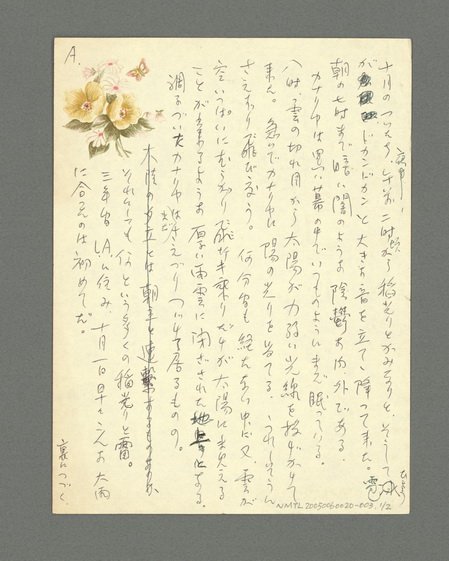 A.
十月のついたち、午前二時頃から稲光りとかみなりと、そうして
夜中、
がドカンドカンと大きな音を立て降って来た。雹 氷
ひょう
朝の七時まで暗い闇のような陰鬱な内外である。
カナリヤは黒い幕の中でいつものようにまだ眠っている。
八時、雲の切れ目から太陽が力強い光線を投げかけて
来た。急いでカナリヤに陽の光りを当てる。うれしそうに
さえずり飛び交う。何分間も経たない中に又、雲が
空いっぱいにむらがり飛行機乗りだけが太陽に出会える
ことが出来るような厚い雨雲に閉ざされた
調子づいたカナリヤはさえずりつづけて居るものの。
大陸の夕立とは朝立と連繋あるものなのか
それにしても何という多くの稲光りと雷。
三年間LAに住み、十月一日早々こんな大雨
に合うのは初めてだ。
裏につづく
NMTL20050060020-003 1/2